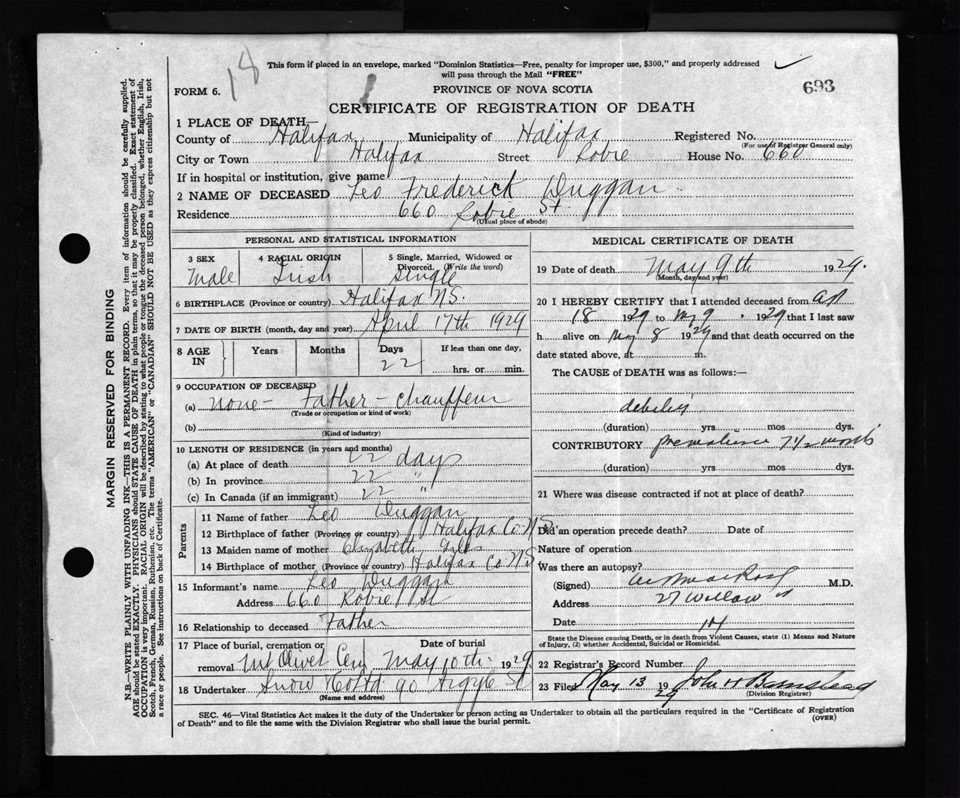 18
This form if placed in an envelope, marked "Dominion Statistics—Free, penalty for improper use, $300," and properly addressed
will pass through the Mail "FREE"
693
FORM 6.
PROVINCE OF NOVA SCOTIA
CERTIFICATE OF REGISTRATION OF DEATH
1 PLACE OF DEATH—
County of Halifax Municipality of Halifax Registered No.
(For use of Registrar General only)
City or Town Halifax Street Robie House No. 660
If in hospital or institution, give name
2 NAME OF DECEASED Leo Frederick Duggan
Residence 660 Robie St.
(Usual place of abode)
PERSONAL AND STATISTICAL INFORMATION
3 SEX 4 RACIAL ORIGIN 5 Single, Married, Widowed or
Divorced. (Write the word)
Male Irish Single
6 BIRTHPLACE (Province or country) Halifax N.S.
7 DATE OF BIRTH (month, day and year) April 17th 1929
8 AGE IN Years Months Days If less than one day,
22 hrs. or min.
9 OCCUPATION OF DECEASED
(a) None - Father - Chauffeur
(Trade or occupation or kind of work)
(b)
(Kind of industry)
10 LENGTH OF RESIDENCE (in years and months)
(a) At place of death 22 days
(b) In province 22 "
(c) In Canada (if an immigrant) 22 "
Parents
11 Name of father Leo Duggan
12 Birthplace of father (Province or country) Halifax Co N.S.
13 Maiden name of mother Elizabeth
14 Birthplace of mother (Province or country) Halifax Co N.S
15 Informant's name Leo Duggan
Address 660 Robie St
16 Relationship to deceased Father
17 Place of burial, cremation or Date of burial
removal Mt Olivet Cem May 10th 1929
18 Undertaker Snow Co Ltd 90 Argyle St
(Name and address)
MEDICAL CERTIFICATE OF DEATH
19 Date of death May 9th 1929.
(Month, day and year)
20 I HEREBY CERTIFY that I attended deceased from Ap
18 1929 to My 9 , 1929 that I last saw
h alive on My 8 1929 and that death occurred on the
date stated above, at m.
The CAUSE OF DEATH was as follows:—
debility
(duration) yrs mos dys.
CONTRIBUTORY premature 7½ months
(duration) yrs mos dys.
21 Where was disease contracted if not at place of death?
Did an operation precede death? Date of
Nature of operation
Was there an autopsy?
(Signed) M.D.
Address 27 Willow St
Date 14
State the Disease causing Death, or in death from Violent Causes, state (1) Means and Nature
of Injury, (2) whether Accidental, Suicidal or Homicidal.
22 Registrar's Record Number
23 Filed May 13 1929 John H Barnstead
(Division Registrar)
SEC. 46—Vital Statistics Act makes it the duty of the Undertaker or person acting as Undertaker to obtain all the particulars required in the "Certificate of Registration
of Death" and to file the same with the Division Registrar who shall issue the burial permit.
(OVER)
MARGIN RESERVED FOR BINDING
N.B.—WRITE PLAINLY WITH UNFADING INK—THIS IS A PERMANENT RECORD. Every item of information should be carefully supplied.
AGE should be stated EXACTLY. PHYSICIANS should STATE CAUSE OF DEATH in plain terms, so that it may be properly classified. Exact statement of
OCCUPATION is very important. RACIAL ORIGIN will be described by stating to what people or tongue the deceased person belonged, whether English, Irish,
Scotch, French, German, Russian, Ruthenian, etc. The terms "AMERICAN" or "CANADIAN" SHOULD NOT BE USED as they express citizenship but not
a race or people. See instructions on back of Certificate.